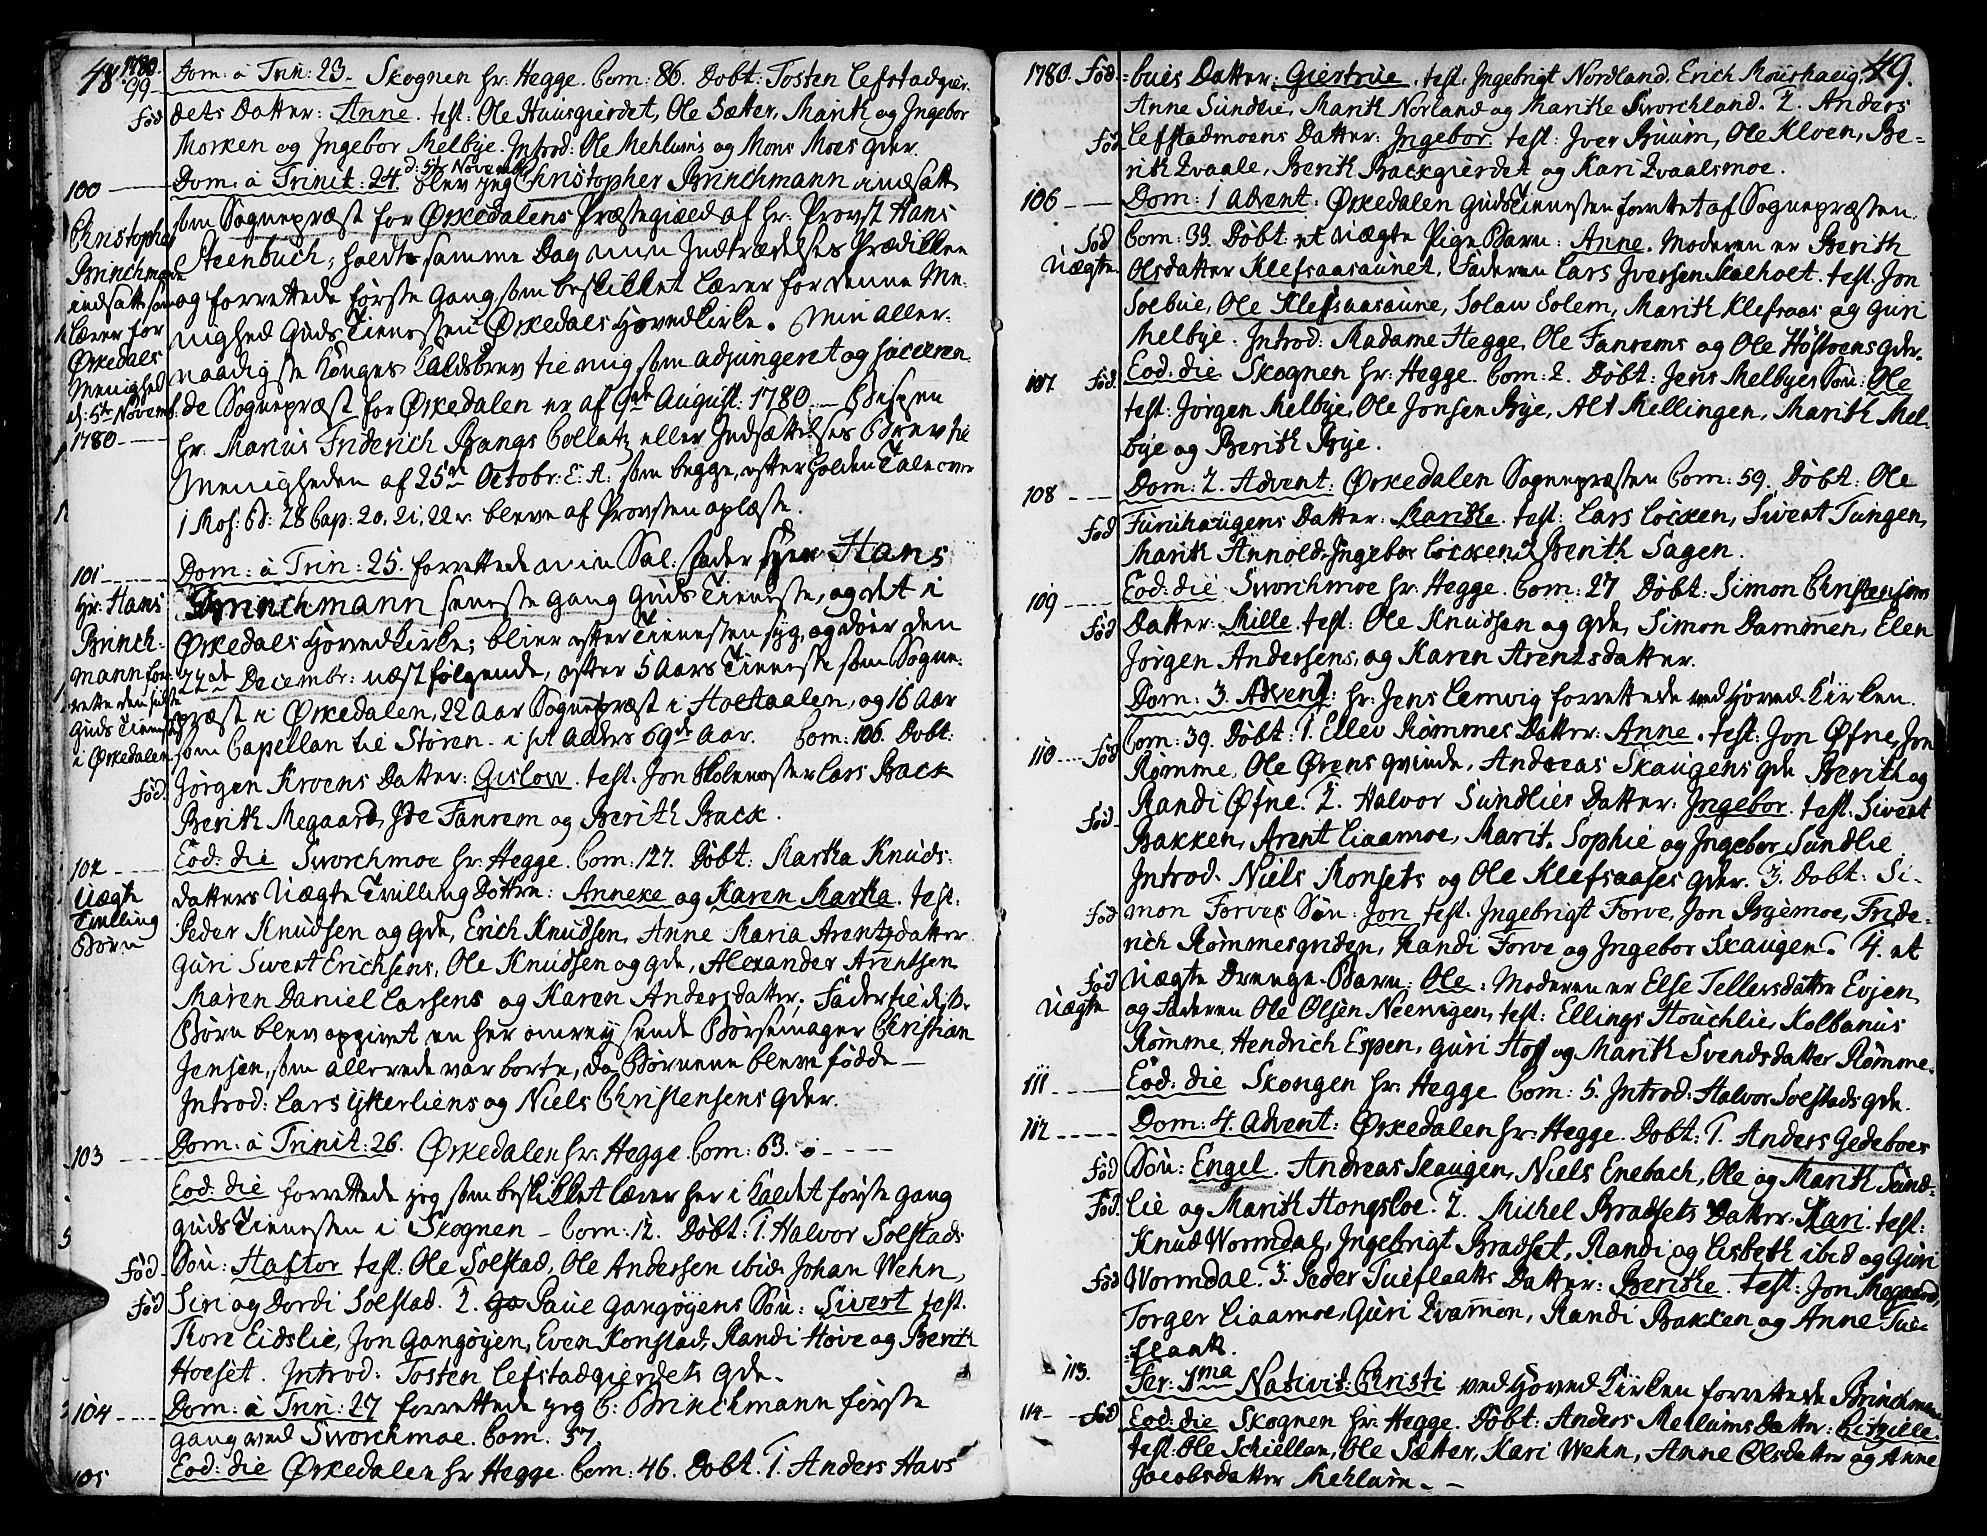 48
1780.
99
Dom: à Trin: 23. Skognen hr: Hegge. Com: 86. Dobt: Tosten Lefstadgier-
Fød
dets Datter: Anne. test: Ole Huusgierdet, Ole Sætter, Marith og Ingebor
Morken og Ingebor Melbye. Introd: Ole Mehlums og Mons Moes qder.
100
Dom: à Trinit: 24. d: 5te Novembr blev jeg Christopher Brinchmann indsatt
Christopher
Brinchmann
indsatt som
Lærer for
Ørkedals
Menighed
d: 5te Novemb:
1780
som Sognepræst for Ørkedalens Præstegield af hr: Provst Hans
Steenbuch; holdt samme Dag min Indtrædelses Prædikken
og forrettede første Gang som beskikket Lærer for denne Me-
nighed Guds Tienesten i Ørkedals Hovedkirke. Min Aller-
naadigste Konges Kaldsbrev til mig som adjungeret og succeren-
de Sognepræst for Ørkedalen er af 9de August: 1780. Bispen
hr. Marius Friderich Bangs Collatz eller Indsættelses Brev til
Menigheden af 25de Octobr: E. A: som begge, efter holden Tale over
1 Mos: B: 28 Cap: 20, 21, 22 v: bleve af Provsten oplæste.
101
Dom: à Trin: 25. forrettede min Sal: Fader Herr Hans
Hr: Hans
Brinch-
mann for-
rette den sidste
Guds Tieneste
i Ørkedalen
Brinchmann seneste Gang Guds Tieneste, og det i
Ørkedals Hovedkirke; bliver efter Tienesten syg, og døer den
22de Decembr: næst følgende, efter 5 Aars Tieneste som Sogne-
præst i Ørkedalen, 22 Aar Sognepræst i Holtaalen, og 16 Aar
som Capellan til Støren. i sit Alders 69de Aar. Com: 106. Dobt:
Fød.
Jørgen Kroens Datter: Gislow. test. Jon Skolemester Lars Back
Berith Megaard, Ide Fanrem og Berith Back.
102
Eod: die Sworchmoe hr: Hegge. Com: 127. Døbt: Martha Knuds-
Uægte
Tvilling
Børn
datters Uægte Tvilling Døttre: Anneke og Karen Martha. test:
Peder Knudsen og qde, Erich Knudsen, Anne Maria Arentzdatter
Guri Sivert Erichsens, Ole Knudsen og qde, Alexander Arentsen
Maren Daniel Larsens og Karen Andersdatter; Fader til disse
Børn blev opgivet en her omreysende Børsemager Christian
Jensen, som allerede var borte, da Børnene bleve fødde
Introd: Lars Ykerliens og Niels Christensens qder.
103
Dom: à Trinit: 26. Ørkedalen hr: Hegge. Com: 63.
Eod: die forrettede jeg som beskikket Lærer her i Kaldet første Gang
Guds Tienesten i Skognen Com: 12. Døbt: 1. Halvor Solstads
Fød.
Søn: Haftor test. Ole Solstad, Ole Andersen ibid: Johan Wehn,
Fød
Siri og Dordi Solstad. 2. Paul Gangøyens Søn: Sivert test.
Thore Eidslie, Jon Gangøyen, Even Konstad, Randi Hove og Berith
Hoeset. Introd: Tosten Lefstadgierdets qde.
104
Dom: à Trin: 27 forrettede jeg C: Brinchmann første
gang ved Sworchmoe. Com. 57.
105
Eod: die Ørkedalen hr Hegge. Com: 46. Dobt. 1. Anders Havs
49.
1780.
Fød
bues Datter: Giertrue. test: Ingebrigt Nordland. Erich Muushaug
Anne Sundlie, Marith Norland og Marithe Sworchland. 2. Anders
Fød
Lefstadmoens Datter: Ingebor. test: Iver Buum, Ole Kloen, Be-
rith Kvaale, Berith Backgierdet og Kari Kvaalsmoe.
106
Dom: 1 Advent: Ørkedalen Guds Tienesten forrettet af Sognepræsten
Fød
Uægte
Com: 33. Døbt: et uægte Pige Barn: Anne. Moderen er Berith
Olsdatter Klefsaasaunet, Faderen Lars Iversen Skalholt. test. Jon
Solbue, Ole Klefsaasaune, Solaw Solem, Marith Klefsaas og Guri
Melbye. Introd: Madame Hegge, Ole Fanrems og Ole Høstoens qder.
107.
Fød.
Eod: die Skognen hr: Hegge. Com: 2. Døbt: Jens Melbyes Søn: Ole
test: Jørgen Melbye, Ole Jonsen Bye, Alf Mellingen, Marith Mel-
bye og Berith Bye.
108
Dom: 2. Advent: Ørkedalen Sognepræsten Com: 59. Døbt: Ole
Fød
Furuhaugens Datter: Marithe. test: Lars Locken, Sivert Tungen,
Marith Hannold, Ingebor Locken og Berith Sagen.
109
Eod: die Sworchmoe hr: Hegge. Com: 27 Døbt: Simon Christensøns
Fød
Datter: Mille. test: Ole Knudsen og qde, Simon Dammen, Elen
Jørgen Andersens, og Karen Arentsdatter.
Dom: 3. Advent: hr: Jens Lemvig forrettede ved Hoved Kirken.
110
Fød
Com: 39. Døbt: 1. Ellev Rømmes Datter: Anne. test: Jon Øfne, Jon
Rømme, Ole Ørens qvinde, Andreas Skaugens qde Berith og
Fød
Randi Øfne. 2. Halvor Sundlies Datter: Ingebor. test. Sivert
Bakken, Arent Liaamoe, Marit, Sophie og Ingebor Sundlie
Introd: Niels Monsets og Ole Klefsaases qder. 3. Dobt: Si-
Fød
mon Forves Søn: Jon test. Ingebrigt Forve, Jon Byemoe, Fride-
rich Rømmesgriden, Randi Forve og Ingebor Skaugen. 4. et
Fød
Uægte
Uægte Drenge-Barn: Ole. Moderen er Else Tellersdatter Evjen
og Faderen Ole Olsen Neervigen, test: Ellings Houchlie, Kolbanus
Rømme, Hendrich Espen, Guri Hoff og Marith Svendsdatter Rømme.
111
Eod: die Skongen hr: Hegge Com: 5. Introd: Halvor Solstads qde.
112
Dom: 4. Advent: Ørkedalen hr: Hegge. Dobt: 1. Anders Gedeboes
Fød
Søn: Engel. Andreas Skaugen, Niels Enebach, Ole og Marith Sund-
Fød.
lie og Marith Hongsloe. 2. Michel Bradsets Datter: Kari. test:
Knud Wormdal, Ingebrigt Bradset, Randi og Lisbeth ibid og Guri
Fød
Wormdal. 3. Peder Tuflaatts Datter: Berithe. test: Jon Megaard,
Torger Liaamoe, Guri Kvamen, Randi Bakken og Anne Tue-
flaatt.
113.
Fer: 1ma Nativit: Christi ved Hoved Kirken forrettede Brinchmann
114
Fød
Eod: die Skognen hr: Hegge. Døbt: Anders Mehlums Datter: Citzille.
test: Ole Schiellan, Ole Sætter, Kari Wehn, Anne Olsdatter og Anne
Jacobsdatter Mehlum.